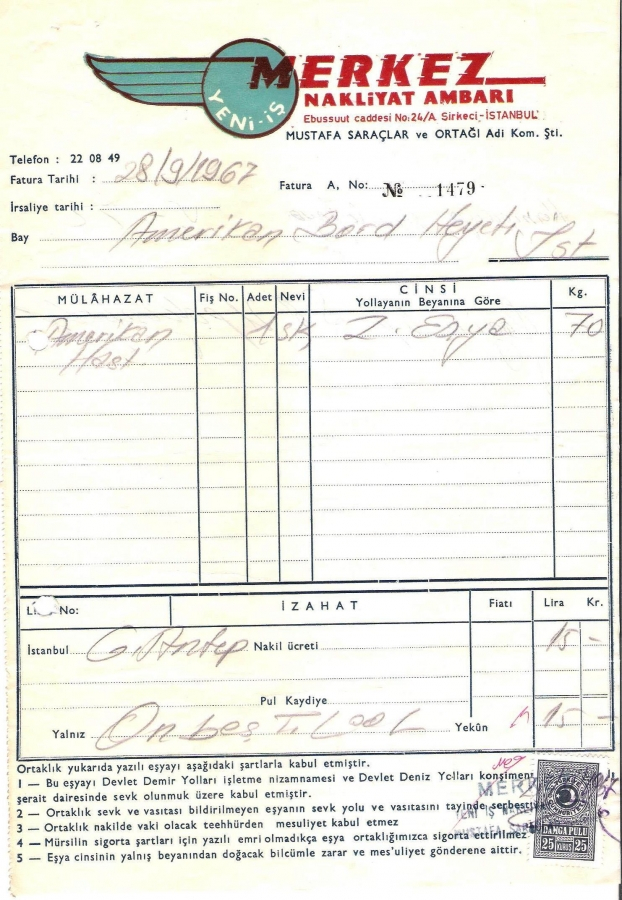 MERKEZ
YENİ-İŞ
NAKLİYAT AMBARI
Ebussuut caddesi No: 24/A Sirkeci - İSTANBUL
MUSTAFA SARAÇLAR ve ORTAĞI Adi Kom. Şti.
Telefon : 22 08 49
Fatura Tarihi : 28/9/1967
Fatura A, No: № 1479
İrsaliye tarihi :
Bay Amerikan Bord Heyeti İst
MÜLÂHAZAT Fiş No. Adet Nevi CİNSİ Yollayanın Beyanına Göre Kg.
Amerikan 1 sk Z. Eşya 70
Hast
No: İZAHAT Fiatı Lira Kr.
İstanbul G.Antep Nakil ücreti 15 -
Pul Kaydiye
Yalnız On beş T. L Yekûn 15 -
Ortaklık yukarıda yazılı eşyayı aşağıdaki şartlarla kabul etmiştir.
1 — Bu eşyayı Devlet Demir Yolları işletme nizamnamesi ve Devlet Deniz Yolları konşiment
şerait dairesinde sevk olunmak üzere kabul etmiştir.
2 — Ortaklık sevk ve vasıtası bildirilmeyen eşyanın sevk yolu ve vasıtasını tayinde serbesttir
3 — Ortaklık nakilde vaki olacak teehhürden mesuliyet kabul etmez
4 — Mürsilin sigorta şartları için yazılı emri olmadıkça eşya ortaklığımızca sigorta ettirilmez
5 — Eşya cinsinin yalnış beyanından doğacak bilcümle zarar ve mes'uliyet gönderene aittir.
DAMGA PULU
25 KURUŞ 25